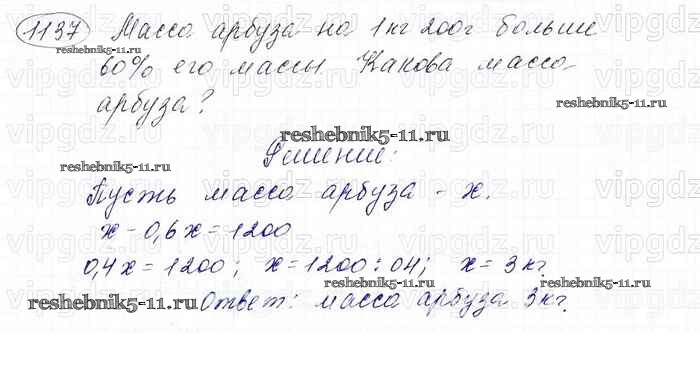 1137 Масса арбуза на 1кг 200г больше
reshebnik5-11.ru
60% его массы. Какова масса
vipgdz.ru
reshebnik5-11.ru
арбуза?
reshebnik5-11.ru
reshebnik5-11.ru
Решение:
Пусть масса арбуза - х.
х - 0,6х = 1200
0,4х = 1200; х = 1200 : 04; х = 3кг.
reshebnik5-11.ru
reshebnik5-11.ru
Ответ: масса арбуза 3кг.